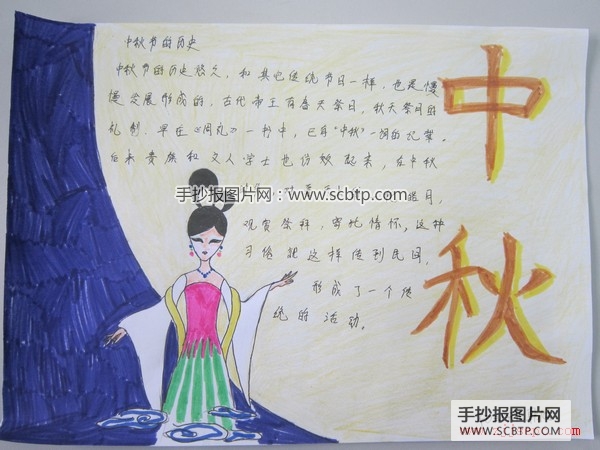 中秋节的历史
中秋节的历史悠久，和其它传统节日一样，也是慢
慢发展形成的，古代帝王有春天祭日，秋天祭月的
礼制，早在《周礼》一书中，已有“中秋”一词的记载。
后来贵族和文人学士也仿效起来，在中秋
月，
观赏祭拜，寄托情怀，这种
习俗就这样传到民间，
形成了一个传
统的活动。
中秋
手抄报图片网
www.scbtp.com
手抄报图片网
WWW.SCBTP.COM